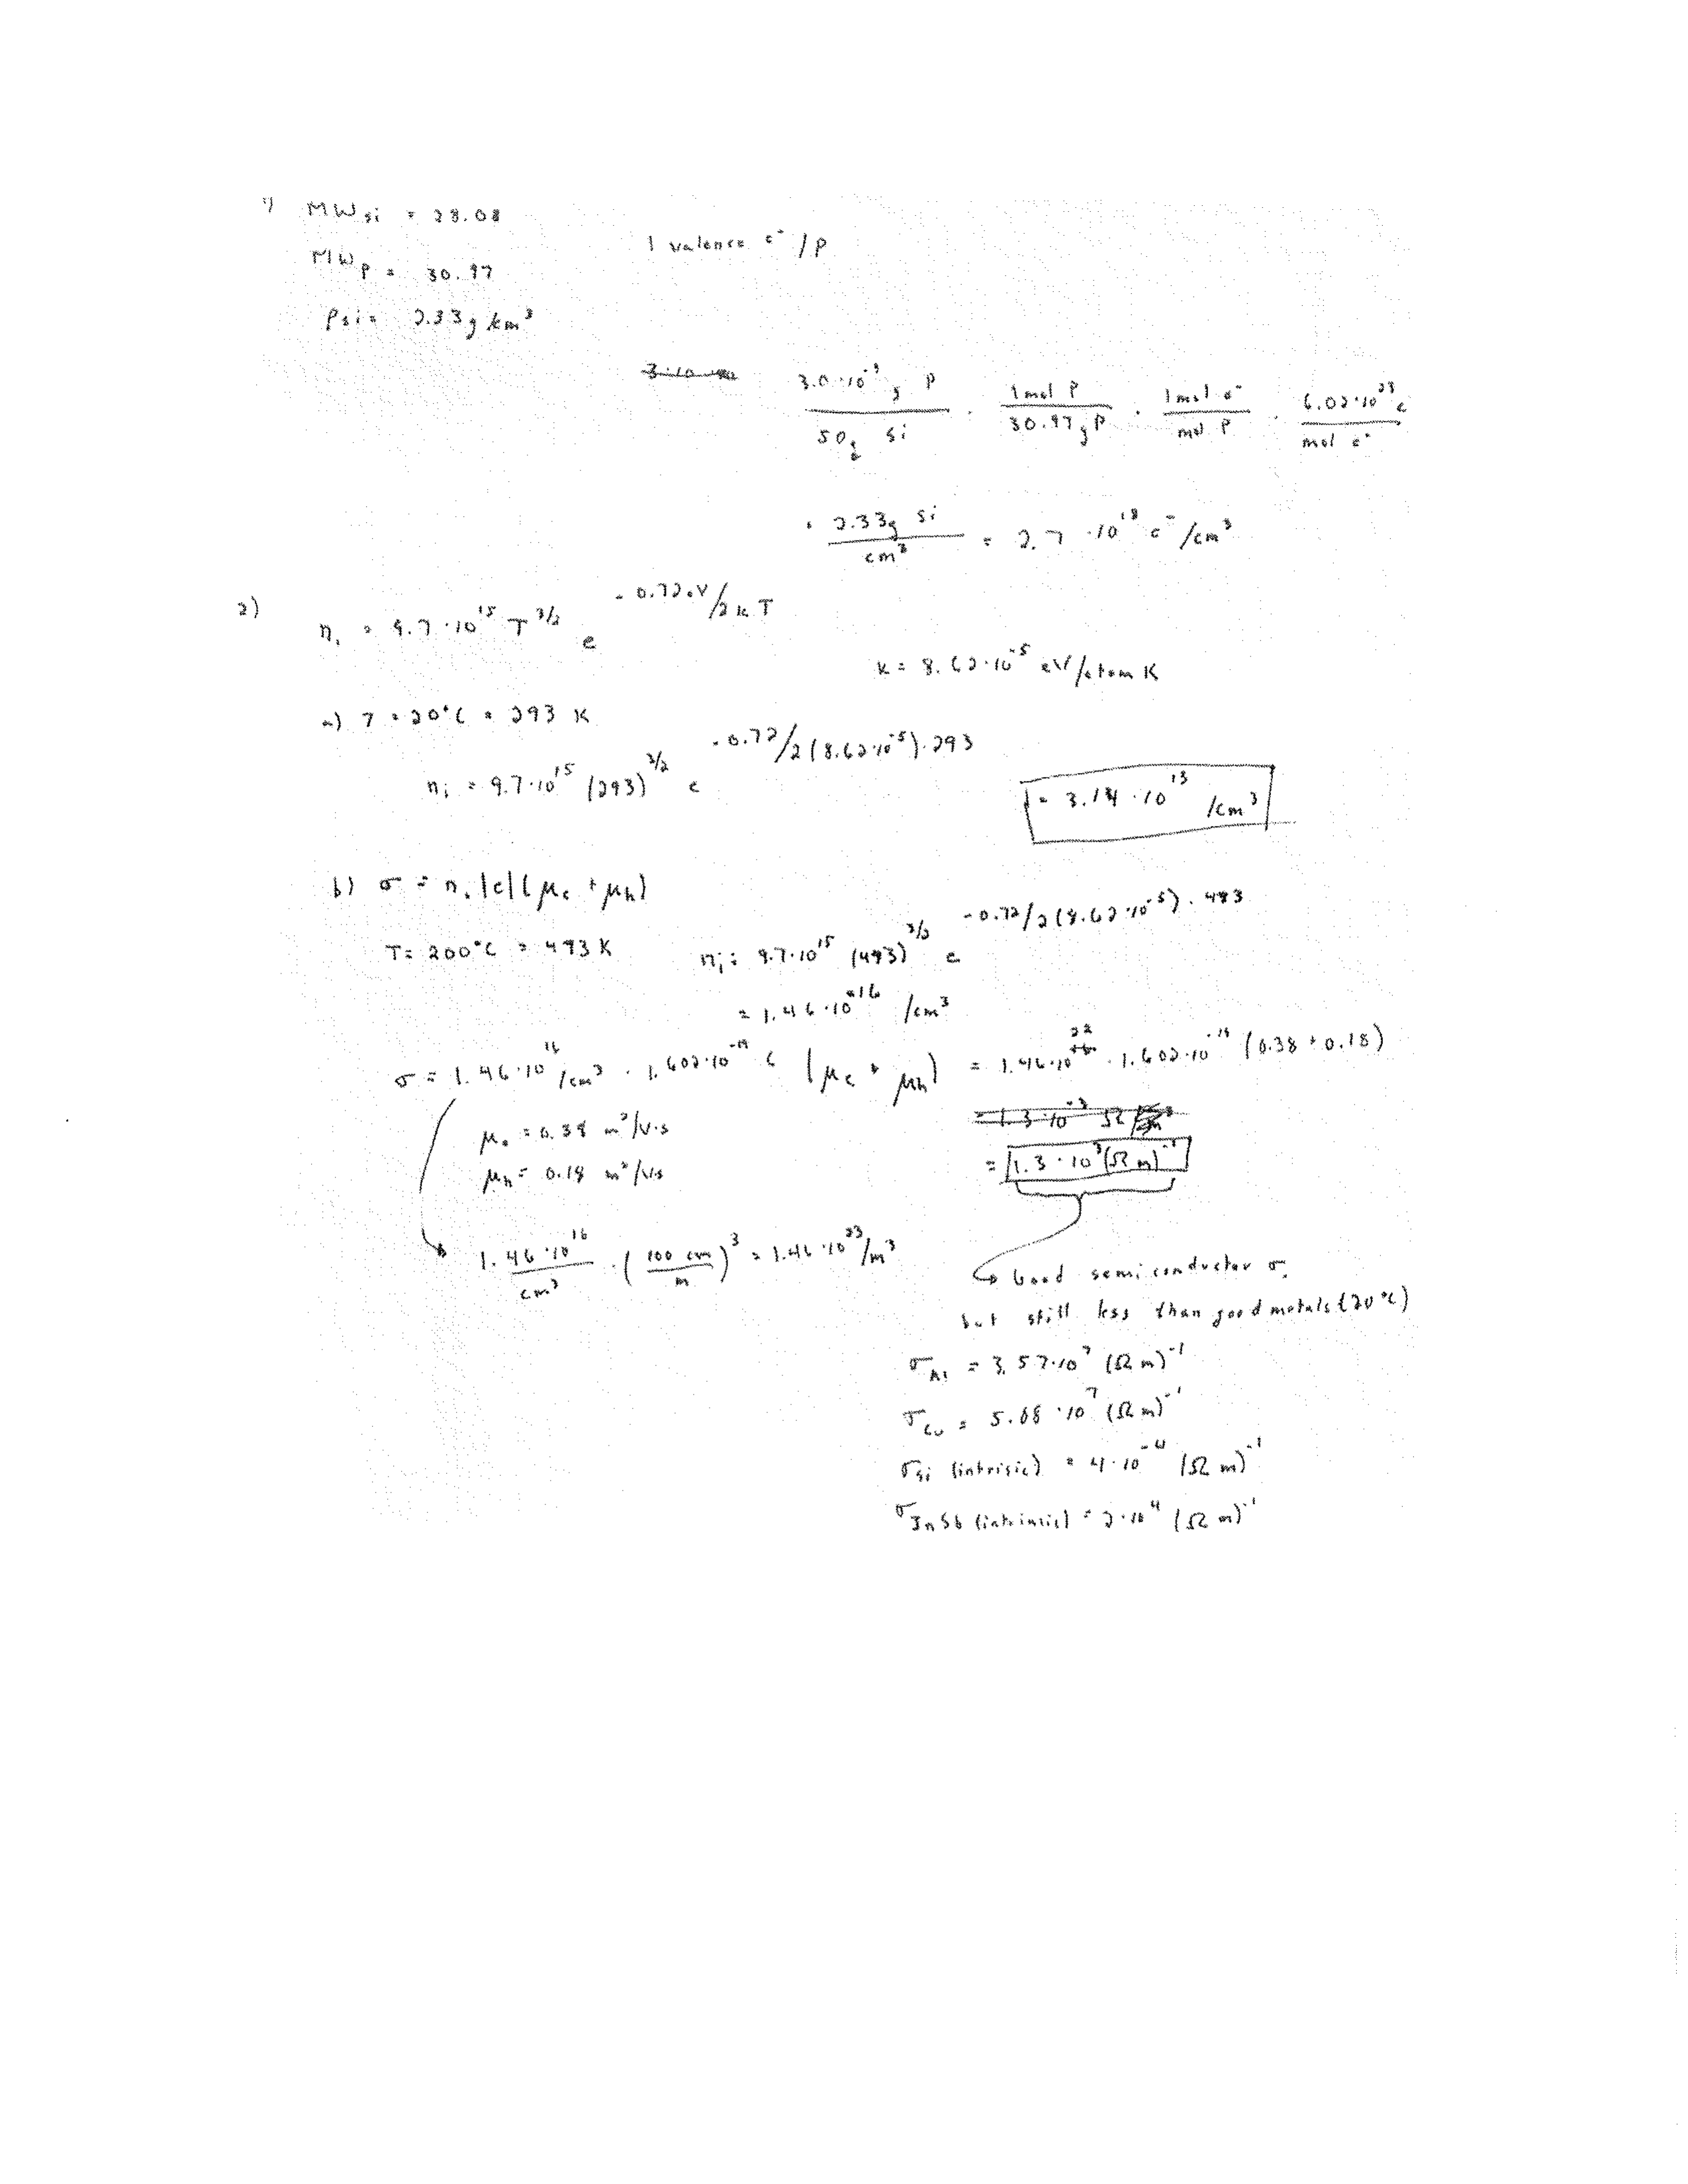 1) MW Si = 28.08
1 valence e⁻/P
MW P = 30.97
ρ Si = 2.33 g/cm³
3·10
3.0·10⁻³ g P / 50 g Si · 1 mol P / 30.97 g P · 1 mol e⁻ / mol P · 6.02·10²³ e / mol e⁻
· 2.33g Si / cm³ = 2.7 ·10¹⁸ e⁻/cm³
2) nᵢ = 9.7·10¹⁵ T^3/2 e^-0.72eV/2kT
k = 8.62·10⁻⁵ eV/atom K
a) T = 20°C = 293 K
nᵢ = 9.7·10¹⁵ (293)^3/2 e^-0.72/2(8.62·10⁻⁵)·293
= 3.14 ·10¹³ /cm³
b) σ = nᵢ|e|(μe + μh)
T = 200°C = 493 K nᵢ = 9.7·10¹⁵ (493)^3/2 e^-0.72/2(8.62·10⁻⁵)·493
= 1.46·10¹⁶ /cm³
σ = 1.46·10¹⁶/cm³ · 1.602·10⁻¹⁹ C (μe + μh) = 1.46·10²² · 1.602·10⁻¹⁹ (0.38 + 0.18)
= 1.3·10⁻³ Ω
μe = 0.38 m²/V·s
= 1.3·10³(Ω m)⁻¹
μh = 0.18 m²/V·s
1.46·10¹⁶ / cm³ · (100 cm / m)³ = 1.46·10²³/m³
Good semiconductor σ,
but still less than good metals (20°C)
σ Al = 3.57·10⁷ (Ω m)⁻¹
σ Cu = 5.88·10⁷ (Ω m)⁻¹
σ Si (intrisic) = 4·10⁻⁴ (Ω m)⁻¹
σ InSb (intrinsic) = 2·10⁴ (Ω m)⁻¹